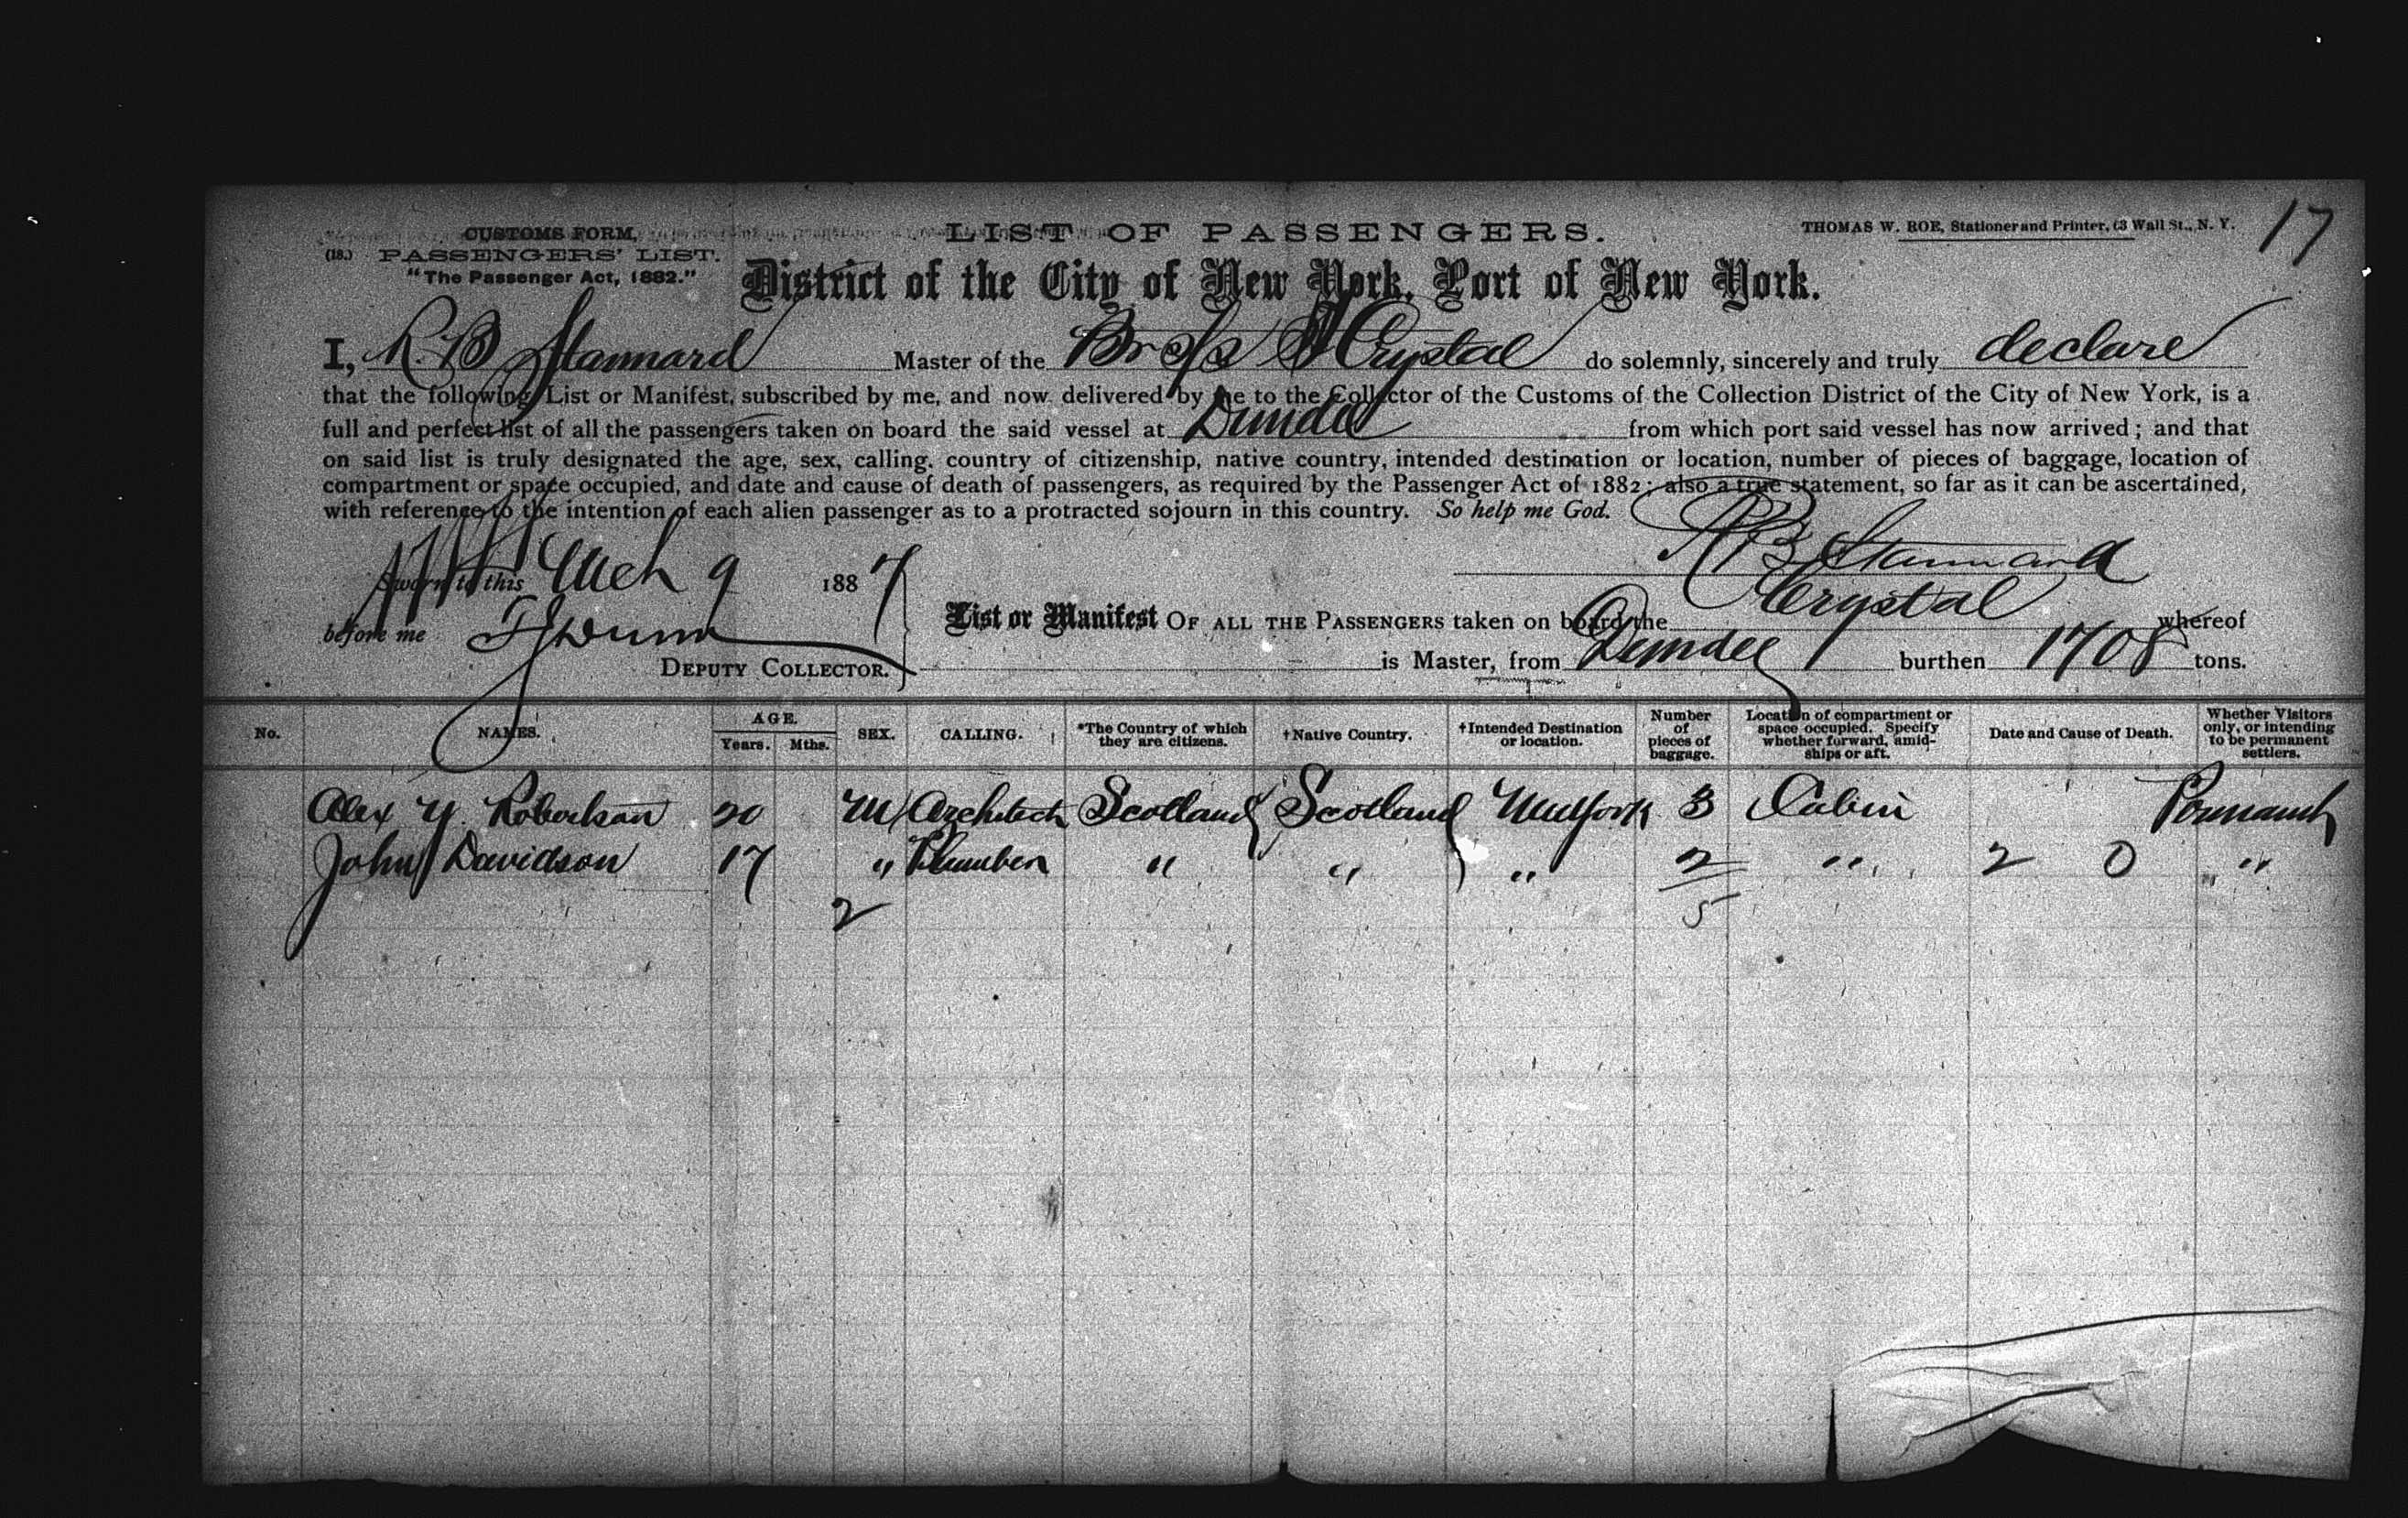 CUSTOMS FORM,
(18.) PASSENGERS' LIST.
"The Passenger Act, 1882."
LIST OF PASSENGERS.
THOMAS W. ROE, Stationer and Printer, 63 Wall St., N. Y.
17
District of the City of New York, Port of New York.
I, R. B Stannard Master of the Br S/S Crystal do solemnly, sincerely and truly declare
that the following List or Manifest, subscribed by me, and now delivered by me to the Collector of the Customs of the Collection District of the City of New York, is a
full and perfect list of all the passengers taken on board the said vessel at Dundee from which port said vessel has now arrived; and that
on said list is truly designated the age, sex, calling, country of citizenship, native country, intended destination or location, number of pieces of baggage, location of
compartment or space occupied, and date and cause of death of passengers, as required by the Passenger Act of 1882; also a true statement, so far as it can be ascertained,
with reference to the intention of each alien passenger as to a protracted sojourn in this country. So help me God.
R B Stannard
Sworn to this Mch 9 1887
before me Dunn
DEPUTY COLLECTOR.
List or Manifest OF ALL THE PASSENGERS taken on board the Crystal whereof
is Master, from Dundee burthen 1708 tons.
No. NAMES. AGE. Years. Mths. SEX. CALLING. *The Country of which they are citizens. †Native Country. †Intended Destination or location. Number of pieces of baggage. Location of compartment or space occupied. Specify whether forward, amidships or aft. Date and Cause of Death. Whether Visitors only, or intending to be permanent settlers.
Alex Y. Robertson 20 M Architect Scotland Scotland New York 3 Cabin Permanent
John Davidson 17 " Plumber " " " 2 " 2 0 "
2 5